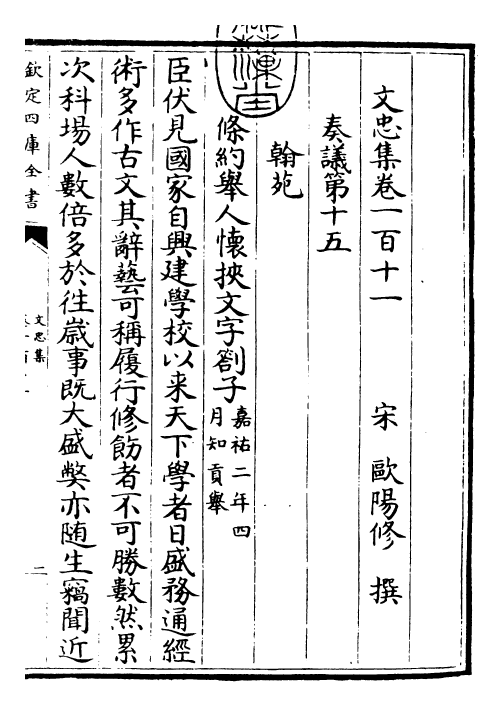 文忠集卷一百十一
宋 歐陽修 撰
奏議第十五
翰苑
條約舉人懷挾文字劄子嘉祐二年四月知貢舉
臣伏見國家自興建學校以来天下學者日盛務通經
術多作古文其辭藝可稱履行修飭者不可勝數然累
次科場人數倍多於往歲事既大盛弊亦随生竊聞近
欽定四庫全書
文忠集